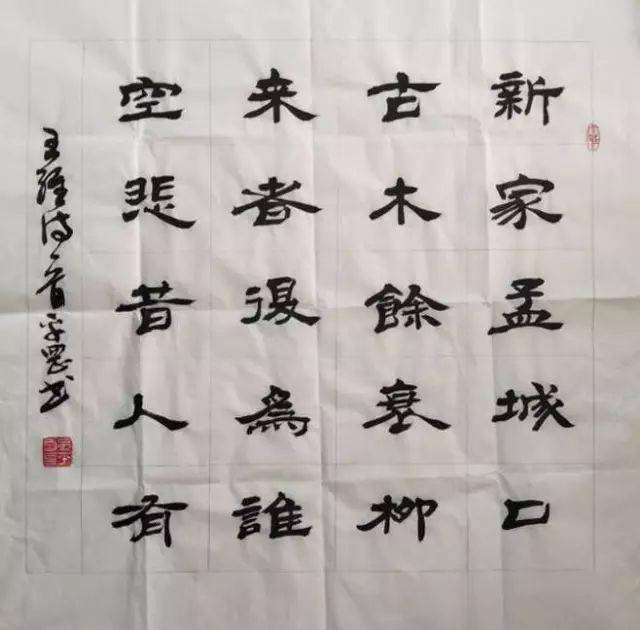 新家孟城口
古木餘衰柳
来者復為誰
空悲昔人有
王維詩一首